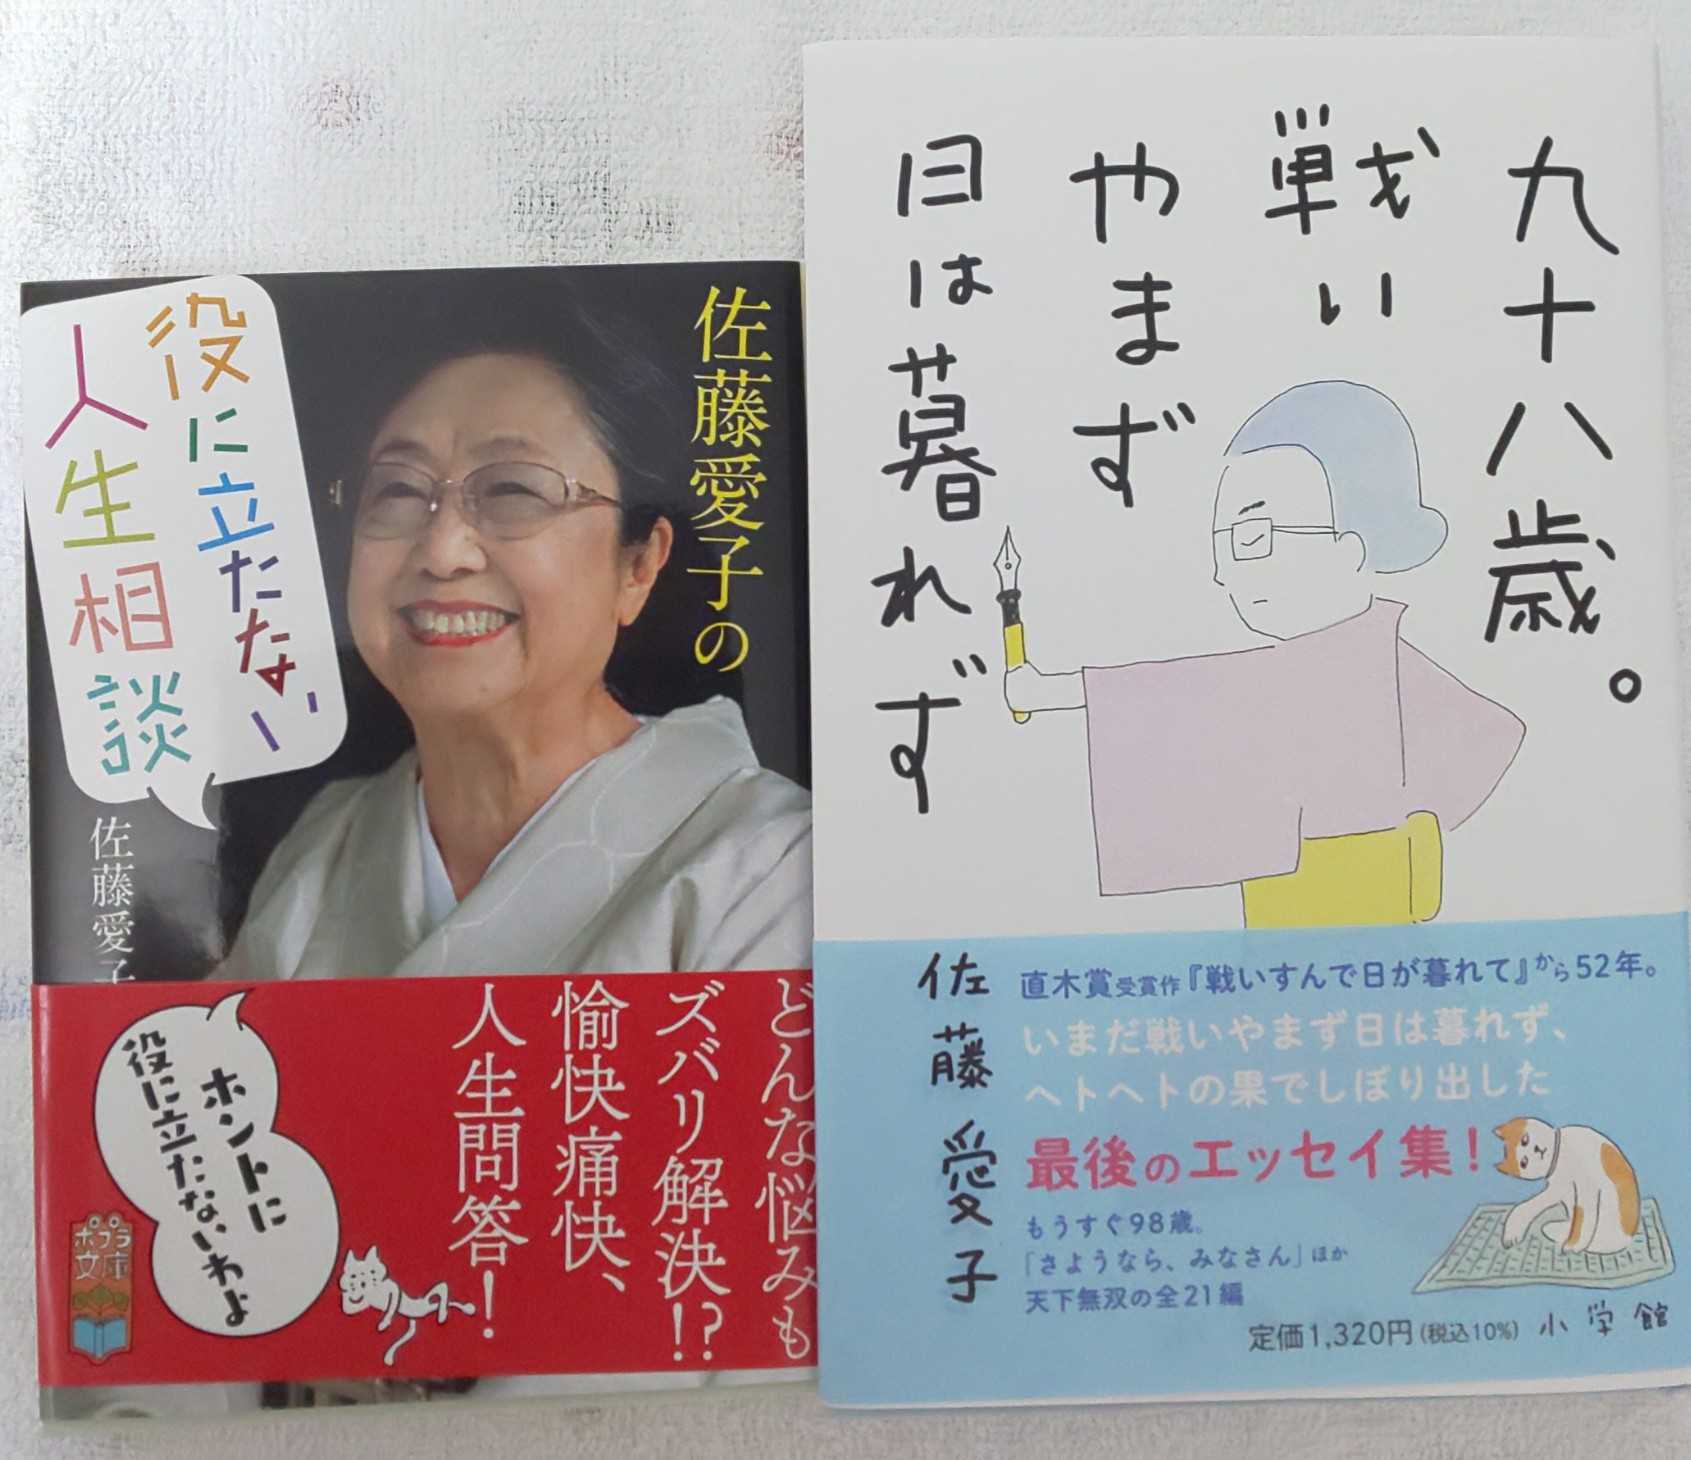 佐藤愛子の
役に立たない
人生相談
佐藤愛子
どんな悩みも
ズバリ解決!?
愉快痛快、
人生問答!
ホントに
役に立たないわよ
ポプラ
文庫
九十八歳。
戦い
やまず
日は暮れず
佐藤愛子
直木賞受賞作『戦いすんで日が暮れて』から52年。
いまだ戦いやまず日は暮れず、
ヘトヘトの果でしぼり出した
最後のエッセイ集!
もうすぐ98歳。
「さようなら、みなさん」ほか
天下無双の全21編
定価1,320円(税込10%)
小学館